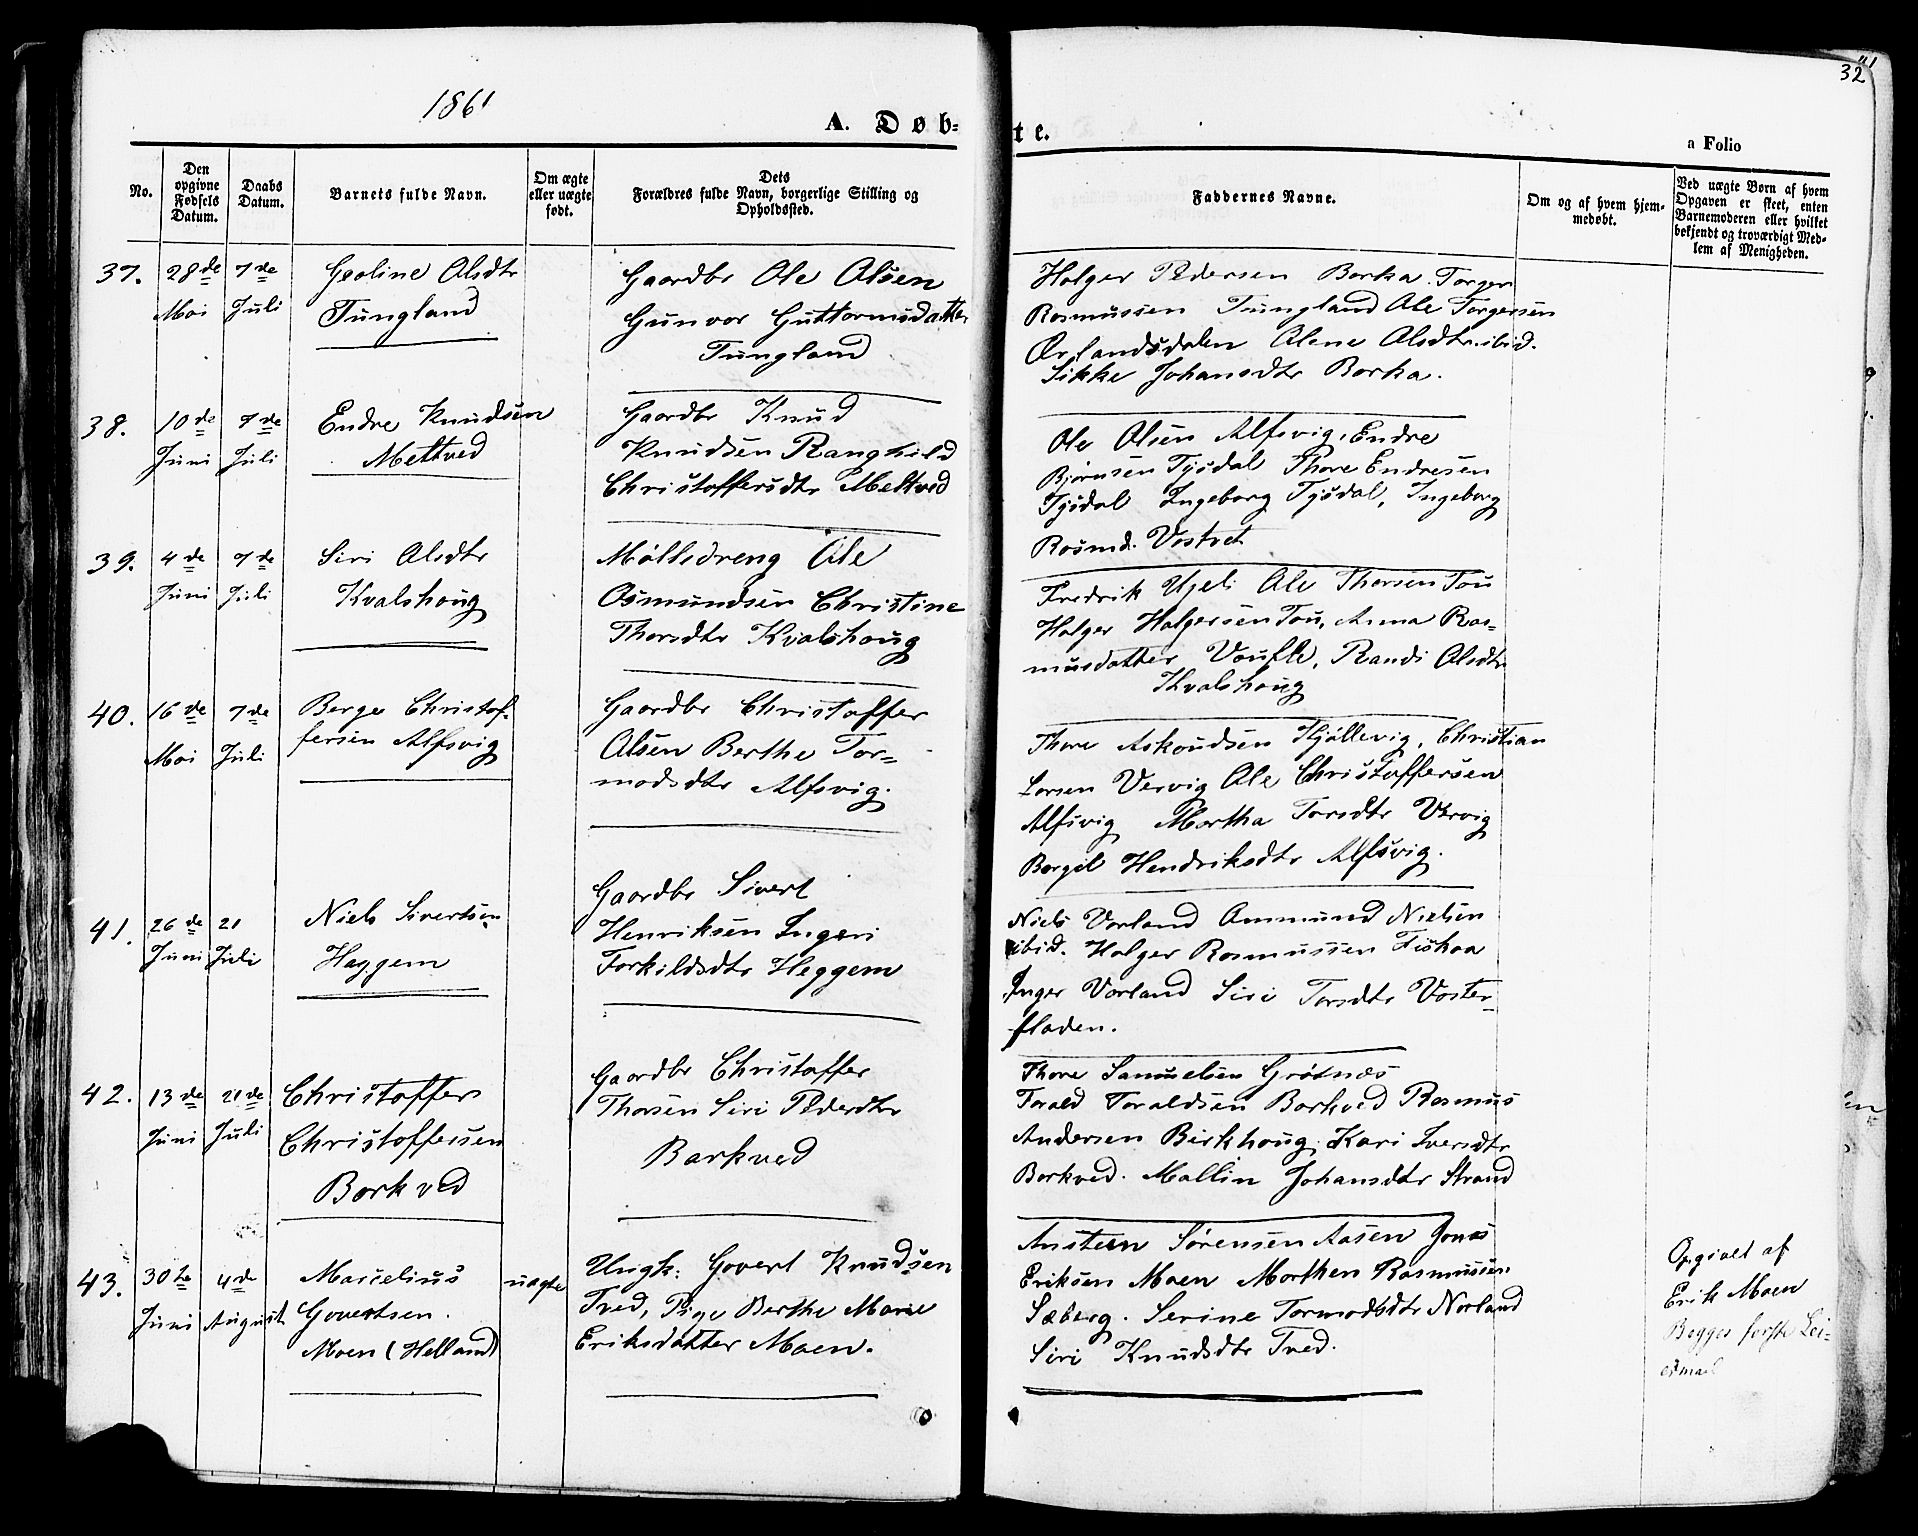 1861
A. Døb=
te.
a Folio
32
No.
Den
opgivne
Fødsels
Datum.
Daabs
Datum.
Barnets fulde Navn.
Om ægte
eller uægte
født.
Dets
Forældres fulde Navn, borgerlige Stilling og
Opholdssted.
Faddernes Navne.
Om og af hvem hjem-
medøbt.
Ved uægte Børn af hvem
Opgaven er skeet, enten
Barnemoderen eller hvilket
bekjendt og troværdigt Med-
lem af Menigheden.
37.
28de
Mai
7de
Juli
Goline Olsdtr
Tungland
Gaardbr Ole Olsen
Gunvor Guttormsdatter
Tungland
Holger Pedersen Borka. Torger
Rasmussen Tungland Ole Torgersen
Ørlandsdalen Olene Olsdtr ibid.
Sikke Johansdtr Borka.
38.
10de
Juni
7de
Juli
Endre Knudsen
Meltved
Gaardbr Knud
Knudsen Ranghild
Christoffersdtr Meltved
Ole Olsen Alfsvig, Endre
Bjørnsen Tysdal Thore Endresen
Tysdal Ingeborg Tysdal, Ingeborg
Rasmd. Vostvet
39.
4de
Juni
7de
Juli
Siri Olsdtr
Kvalshoug
Møllsdreng Ole
Osmundsen Christine
Thorsdtr Kvalshoug
Fredrik Ole Thorsen Tou
Holger Holgersen Tou, Anna Ras-
musdatter Randi Olsdtr
Kvalshoug
40.
16de
Mai
7de
Juli
Berge Christof-
fersen Alfsvig
Gaardbr Christoffer
Olsen Berthe Tor-
modsdtr Alfsvig.
Thore Askoudsen Fjøllevig, Christian
Larsen Vervig Ole Christoffersen
Alfsvig Martha Torsdtr Vervig
Borgel Hendriksdtr Alfsvig.
41.
26de
Juni
21
Juli
Niels Sivertsen
Heggem
Gaardbr Sivert
Henriksen Ingeri
Torkildsdtr Heggem
Niels Vorland Ommund Nielsen
ibid. Holger Rasmussen Fiskaa
Inger Vorland Siri Torsdtr Voster-
fladen.
42.
13de
Juni
21de
Juli
Christoffer
Christoffersen
Barkved
Gaardbr Christoffer
Thorsen Siri Pedersdtr
Barkved
Thore Samuelsen Grødnæs
Torald Toraldsen Barkved Rasmus
Andersen Birkhoug Kari Iversdtr
Barkved. Mallin Johansdtr Strand
43.
30te
Juni
4de
August
Marselius
Govertsen.
Moen (Helland)
uægte
Ungk: Govert Knudsen
Tved, Pige Berthe Marie
Eriksdatter Moen.
Austein Sørensen Aasen Jonas
Eriksen Moen Morthen Rasmussen
Søberg. Serine Tormodsdtr Norland
Siri Knudsdtr Tved.
Opgivet af
Erik Moen
Begges første Lei-
ermaal